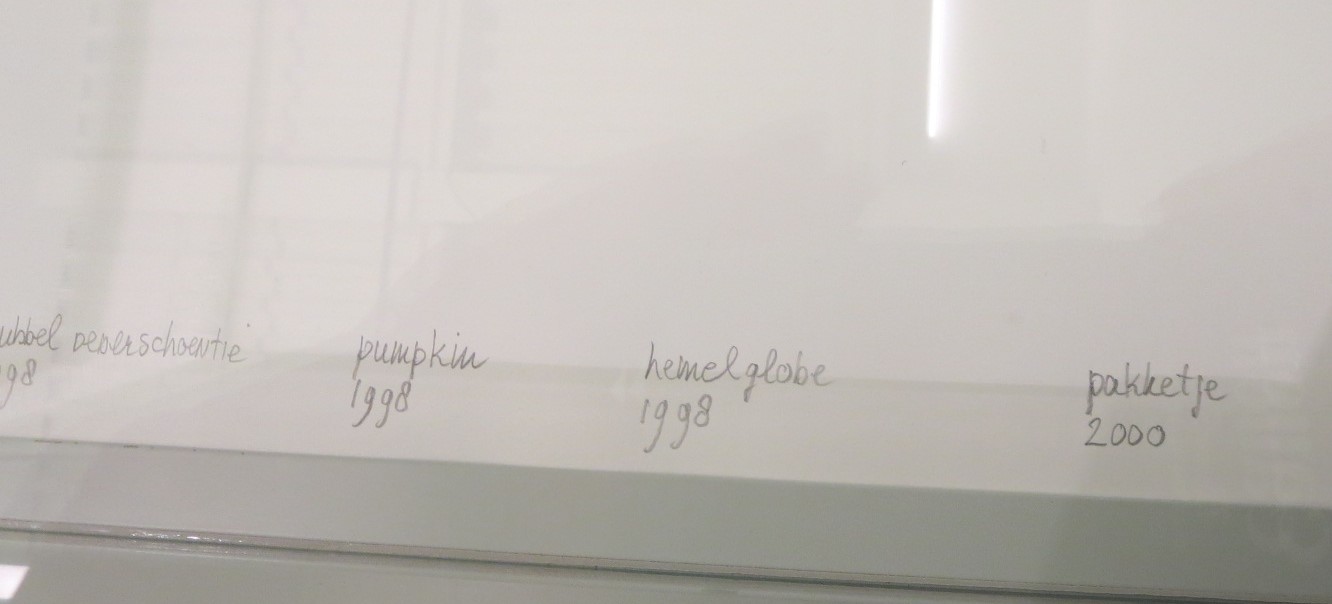 ubbel
98
pumpkin
1998
hemelglobe
1998
pakketje
2000